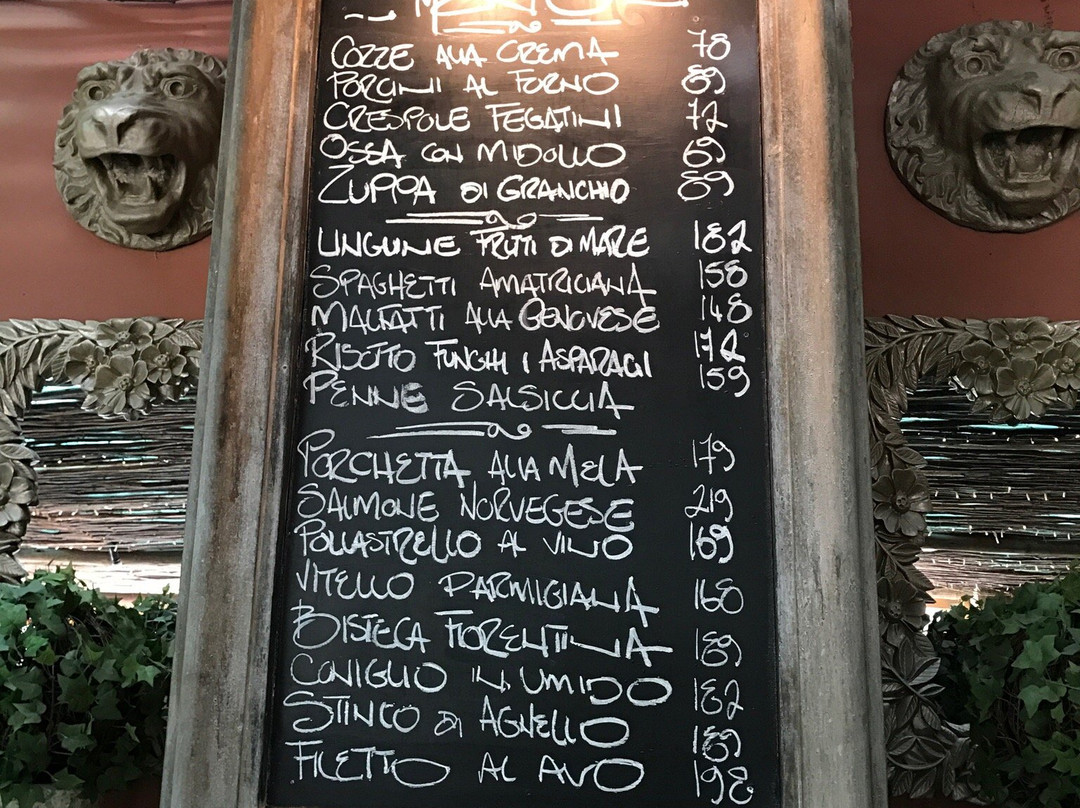 COZZE ALLA CREMA 78
PORCINI AL FORNO 89
CRESPOLE FEGATINI 72
OSSA CON MIDOLLO 69
ZUPPA DI GRANCHIO 89
LINGUINE FRUTI DI MARE 182
SPAGHETTI AMATRICIANA 158
MALFATTI ALLA GENOVESE 148
RISOTTO FUNGHI I ASPARAGI 172
PENNE SALSICCIA 159
PORCHETTA ALLA MELA 179
SALMONE NORVEGESE 219
POLLASTRELLO AL VINO 169
VITELLO PARMIGIANA 168
BISTECA FIORENTINA 189
CONIGLIO IN UMIDO 182
STINCO DI AGNELLO 189
FILETTO AL AVO 198